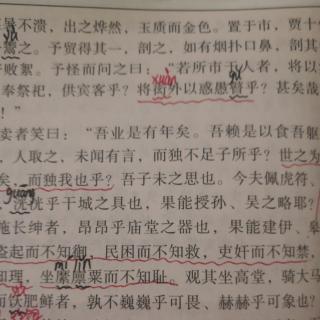 寒暑不溃，出之烨然，玉质而金色。置于市，贾十
yù
鬻之。予贸得其一，剖之，如有烟扑口鼻，剖其
于败絮。予怪而问之曰：“若所市于人者，将以
xuàn gǔ
奉祭祀，供宾客乎？将衒外以惑愚瞽乎？甚矣哉
！”
卖者笑曰：“吾业是有年矣。吾赖是以食吾躯
，人取之，未闻有言，而独不足子所乎？世之为
矣，而独我也乎？吾子未之思也。今夫佩虎符、
guāng
洸洸乎干城之具也，果能授孙、吴之略耶？
拖长绅者，昂昂乎庙堂之器也，果能建伊、皋
盗起而不知御，民困而不知救，吏奸而不知禁，
知理，坐糜廪粟而不知耻。观其坐高堂，骑大马
mí lǐn
而饫肥鲜者，孰不巍巍乎可畏、赫赫乎可象也？